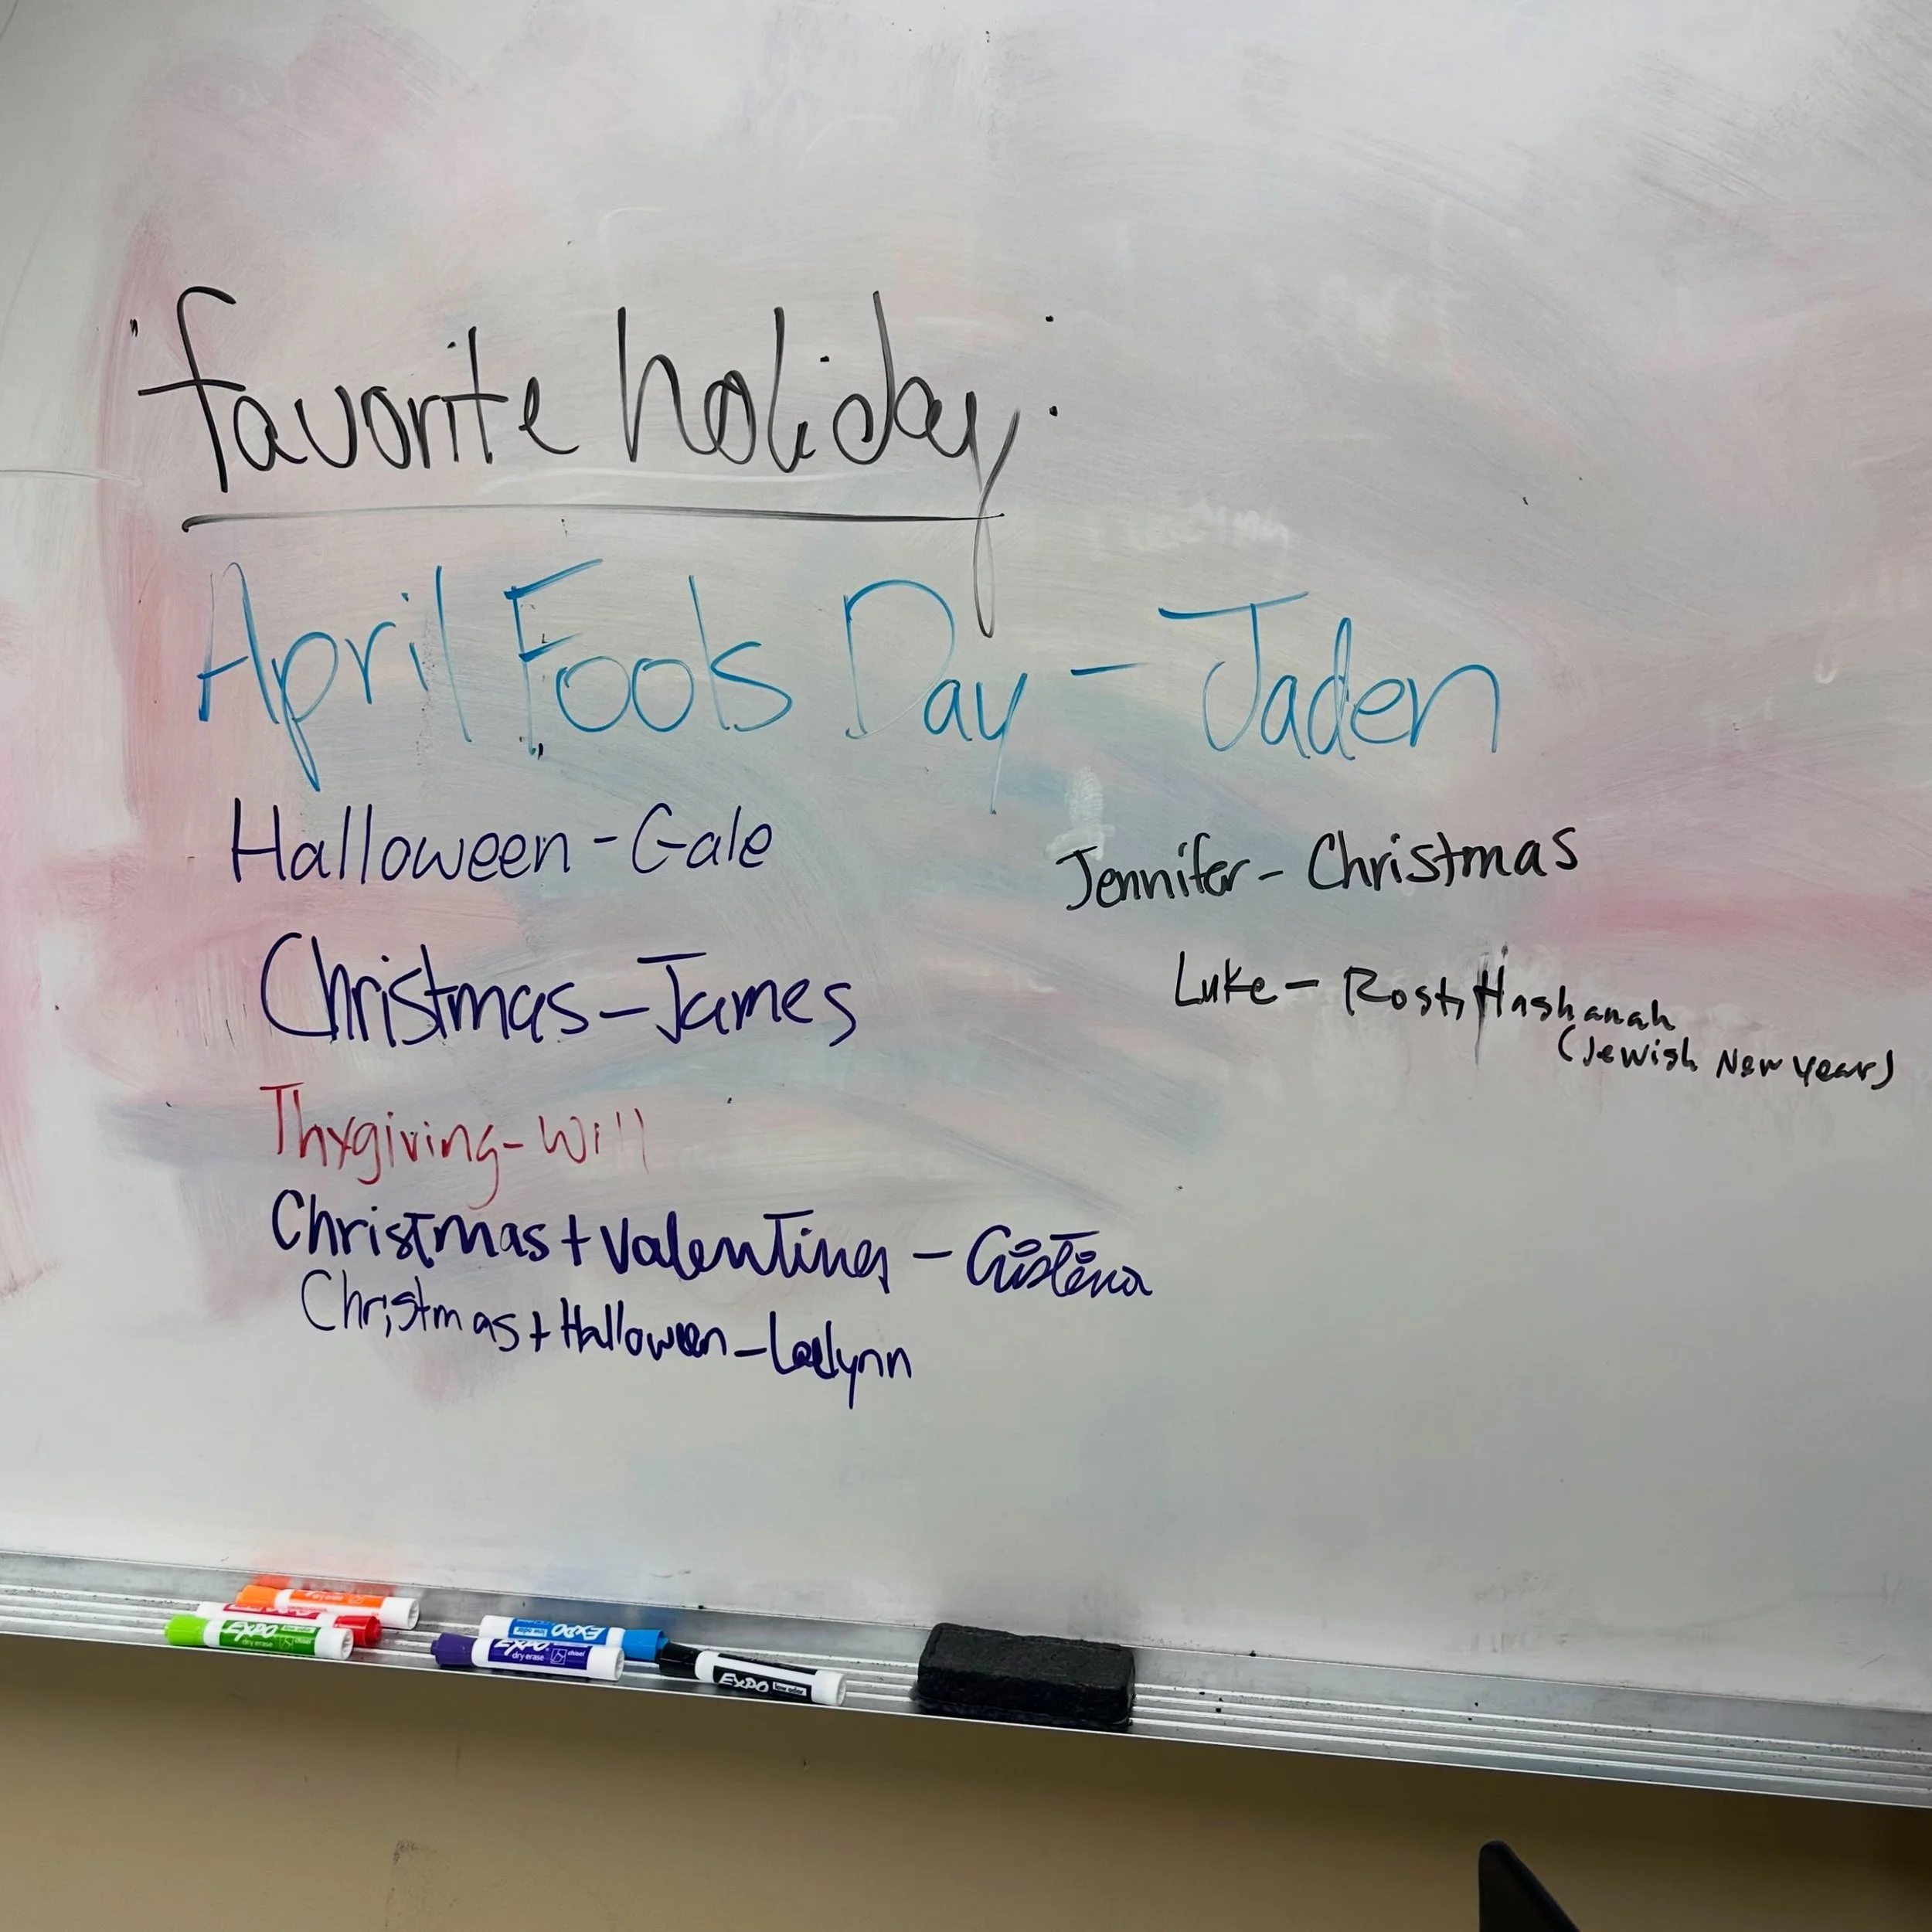 favorite holiday:
April Fools Day - Jaden
Halloween - Gale
Christmas - James
Thxgiving - Will
Christmas + Valentines - Cristina
Christmas + Halloween - Laelynn
Jennifer - Christmas
Luke - Rosh Hashanah
(Jewish New Year)
EXPO
dry erase
EXPO
EXPO
dry erase
chisel
EXPO
low odor